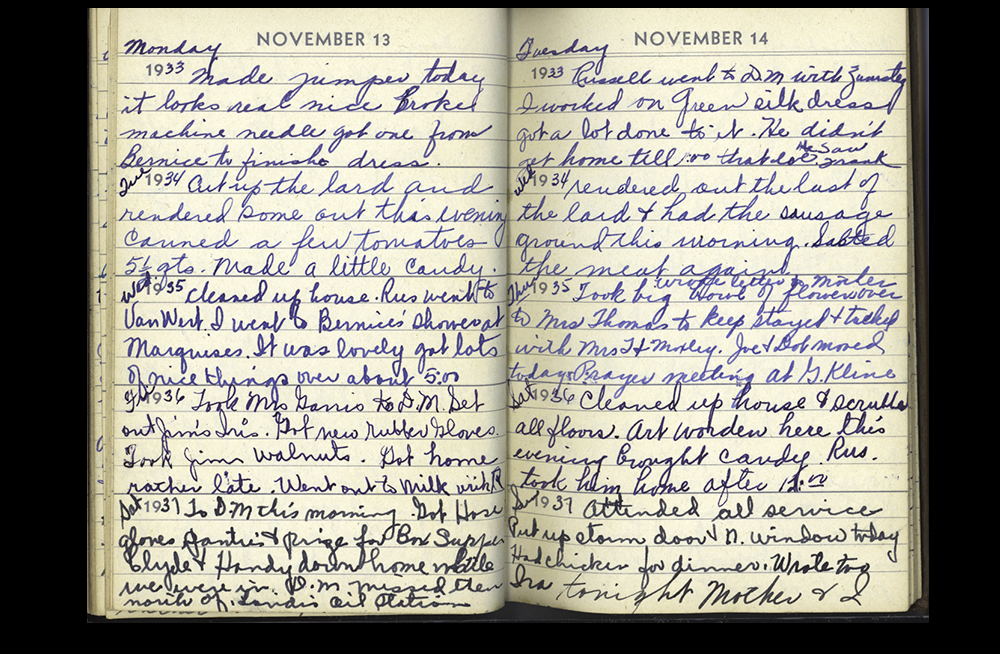 Monday
NOVEMBER 13
1933 Made jumper today
it looks real nice Broke
machine needle got one from
Bernice to finish dress.
Tue 1934 Cut up the lard and
rendered some out this evening
canned a few tomatoes
5½ qts. Made a little candy.
Wed 1935 cleaned up house. Rus went to
Van Wert. I went to Bernice's shower at
Marquises. It was lovely got lots
of nice things over about 5:00
Fri 1936 Took Mrs to D.M. Set
out Jim's Iris. Got new rubber gloves.
Took Jim walnuts. Got home
rather late. Went out to milk with R
Sat 1937 To D.M this morning Got Hose
gloves panties & prize for Box Supper
Clyde & Handy down home while
we were in D.M. missed them
north of Landis oil station
Tuesday
NOVEMBER 14
1933 Russell went to D.M with
I worked on Green silk dress
got a lot done to it. He didn't
get home till :00 that He saw Frank
Wed 1934 rendered out the last of
the lard & had the sausage
ground this morning. Salted
the meat again
wrote letter to Mother
Thu 1935 Took big bowl of flowers over
to Mrs Thomas to keep stayed & talked
with Mrs T & Morley. Joe & Dot moved
today. Prayer meeting at G. Kline
Sat 1936 Cleaned up house & scrubbed
all floors. Art Worden here this
evening brought candy. Rus.
took him home after 12:00
Su 1937 Attended all service
Put up storm door & N. window today
Had chicken for dinner. Wrote to
Ira tonight Mother & I